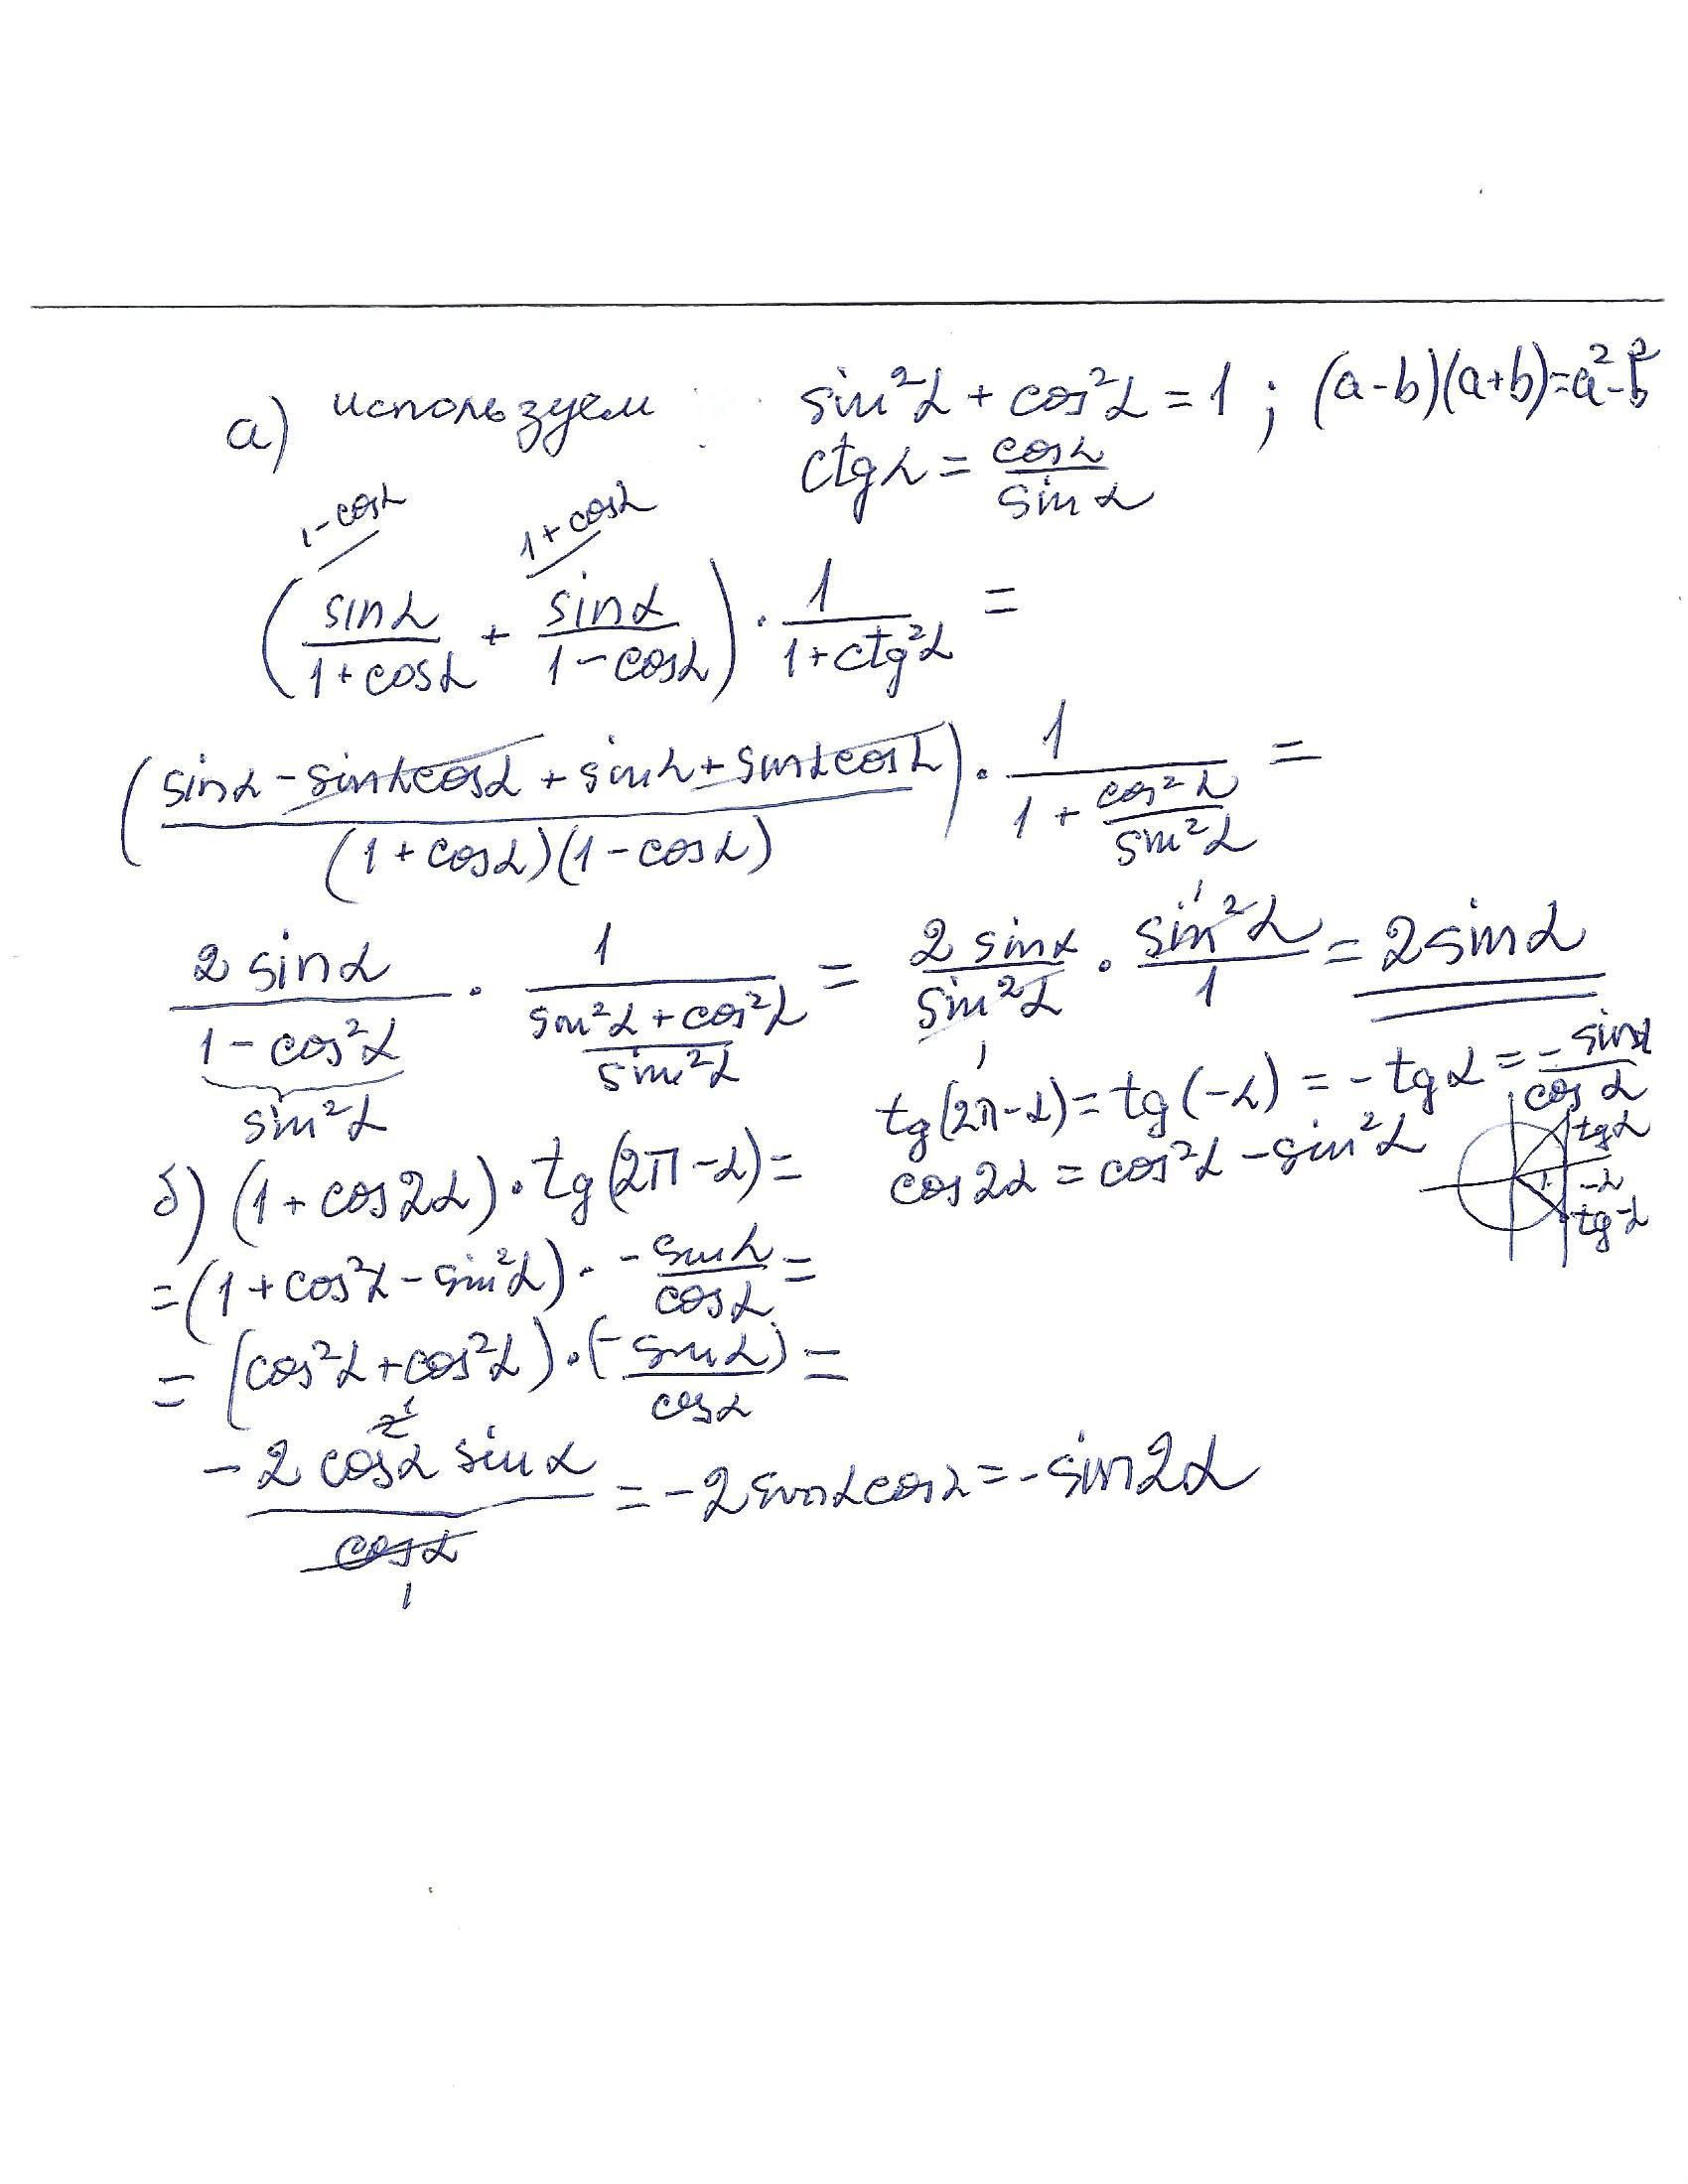 а) используем : sin²α + cos²α = 1 ; (a-b)(a+b)=a²-b²
ctgα = cosα/sinα
1-cosα 1+cosα
(sinα/(1+cosα) + sinα/(1-cosα)) · 1/(1+ctg²α) =
(sinα - sinαcosα + sinα + sinαcosα)/((1+cosα)(1-cosα)) · 1/(1+cos²α/sin²α) =
2sinα/(1-cos²α) · 1/((sin²α+cos²α)/sin²α) = 2sinα/sin²α · sin²α/1 = 2sinα
sin²α
1
1
б) (1+cos2α)·tg(2π-α)=
tg(2π-α)=tg(-α)=-tgα=-sinα/cosα
cos2α=cos²α-sin²α
tgα
-α
tg-α
=(1+cos²α-sin²α)·-sinα/cosα=
=(cos²α+cos²α)·(-sinα/cosα)=
-2cos²α sinα/cosα = -2sinαcosα=-sin2α
1
1